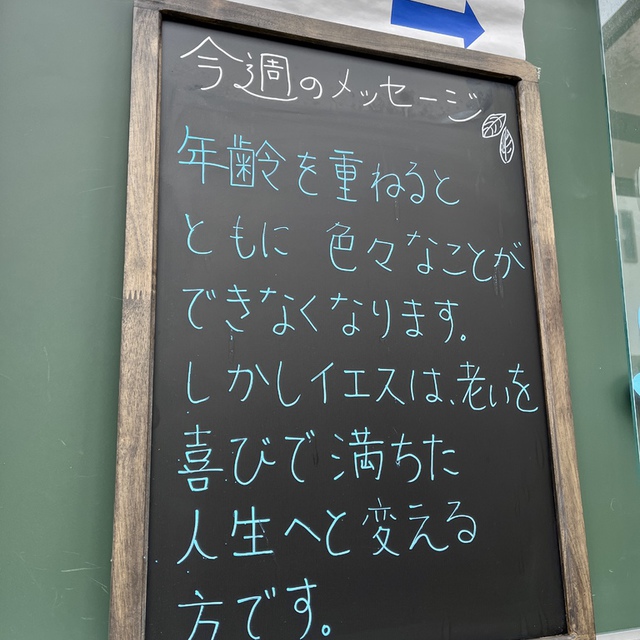 今週のメッセージ
年齢を重ねると
ともに 色々なことが
できなくなります。
しかしイエスは、老いを
喜びで満ちた
人生へと変える
方です。